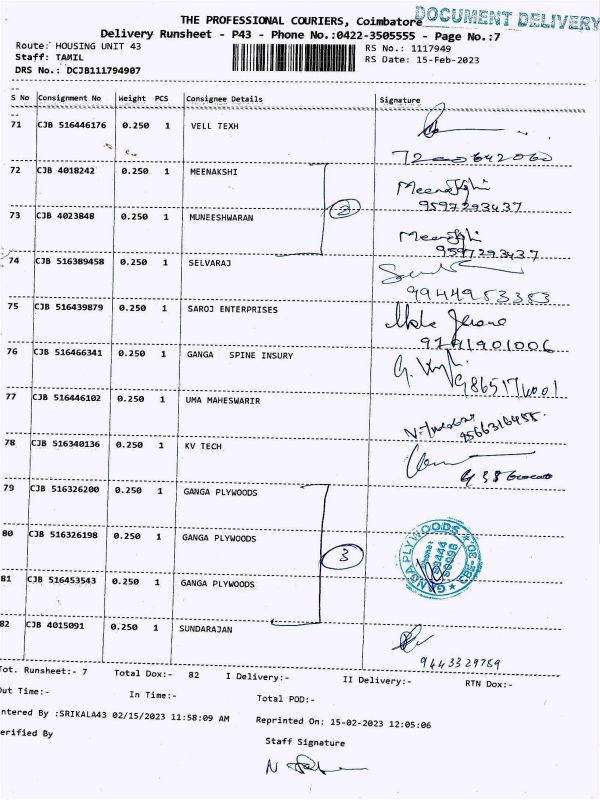 DOCUMENT DELIVERY
THE PROFESSIONAL COURIERS, Coimbatore
Delivery Runsheet - P43 - Phone No.:0422-3505555 - Page No.:7
Route: HOUSING UNIT 43 RS No.: 1117949
Staff: TAMIL RS Date: 15-Feb-2023
DRS No.: DCJB111794907
S No Consignment No Weight PCS Consignee Details Signature
71 CJB 516446176 0.250 1 VELL TEXH
72 CJB 4018242 0.250 1 MEENAKSHI
9597293437
73 CJB 4023848 0.250 1 MUNEESHWARAN
2
9597293437
74 CJB 516389458 0.250 1 SELVARAJ
75 CJB 516439879 0.250 1 SAROJ ENTERPRISES
76 CJB 516466341 0.250 1 GANGA SPINE INSURY
77 CJB 516446102 0.250 1 UMA MAHESWARIR
78 CJB 516340136 0.250 1 KV TECH
79 CJB 516326200 0.250 1 GANGA PLYWOODS
80 CJB 516326198 0.250 1 GANGA PLYWOODS
3
GANGA PLYWOODS
81 CJB 516453543 0.250 1 GANGA PLYWOODS
82 CJB 4015091 0.250 1 SUNDARAJAN
9443329789
Tot. Runsheet:- 7 Total Dox:- 82 I Delivery:- II Delivery:- RTN Dox:-
Out Time:- In Time:- Total POD:-
ntered By :SRIKALA43 02/15/2023 11:58:09 AM Reprinted On: 15-02-2023 12:05:06
erified By Staff Signature